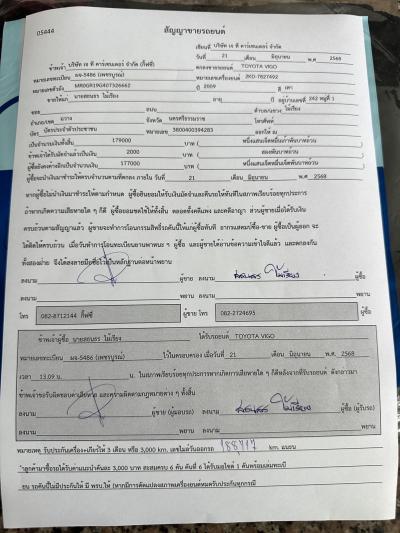 05444
สัญญาขายรถยนต์
เขียนที่ บริษัท เจ ที คาร์เซนเตอร์ จำกัด
วันที่ 21 เดือน มิถุนายน พ.ศ 2568
ข้าพเจ้า บริษัท เจ ที คาร์เซนเตอร์ จำกัด (กิ๊ฟซี่) ตกลงขายรถยนต์ TOYOTA VIGO
หมายเลขทะเบียน ผจ-5486 (เพชรบูรณ์) หมายเลขเครื่องยนต์ 2KD-7827492
หมายเลขตัวถัง MR0GR19G407326662 ปี 2009 สี เทา
ขายให้แก่ นายสถนธร ไม้เรียง อายุ ปี อยู่บ้านเลขที่ 242 หมู่ที่ 1
ซอย ถนน ตำบล/แขวง ไม้เรียง
อำเภอ/เขต ฉวาง จังหวัด นครศรีธรรมราช โทรศัพท์
บัตร บัตรประจำตัวประชาชน หมายเลข 3800400394283 ออกให้ ณ
เป็นจำนวนเงินทั้งสิ้น 179000 บาท ( หนึ่งแสนเจ็ดหมื่นเก้าพันบาทถ้วน
ข้าพเจ้าได้รับมัดจำแล้วเป็นเงิน 2000 บาท ( สองพันบาทถ้วน
ผู้ซื้อยังคงค้างอีกเป็นจำนวนเงิน 177000 บาท ( หนึ่งแสนเจ็ดหมื่นเจ็ดพันบาทถ้วน
ผู้ซื้อจะนำเงินมาชำระให้ครบจำนวนตามที่ตกลง ภายใน วันที่ 21 เดือน มิถุนายน พ.ศ 2568
หากผู้ซื้อไม่นำเงินมาชำระให้ตามกำหนด ผู้ซื้อยินยอมให้ริบเงินมัดจำและคืนรถให้ทันทีในสภาพเรียบร้อยทุกประการ
ถ้าหากเกิดความเสียหายใด ๆ ก็ดี ผู้ซื้อยอมชดใช้ให้ทั้งสิ้น ตลอดทั้งคดีแพ่ง และคดีอาญา ส่วนผู้ขายเมื่อได้รับเงิน
ครบถ้วนตามสัญญาแล้ว ผู้ขายจะทำการโอนกรรมสิทธิ์รถคันนี้ให้แก่ผู้ซื้อทันที
ทั้งสองฝ่าย จึงได้ลงลายมือชื่อไว้เป็นหลักฐานต่อหน้าพยาน
ลงนาม ผู้ขาย ลงนาม สถนธร ไม้เรียง ผู้ซื้อ
ลงนาม พยาน ลงนาม พยาน
โทร 082-8712144 กิ๊ฟซี่ ผู้ขาย โทร 082-2724695 ผู้ซื้อ
ข้าพเจ้าผู้ซื้อ นายสถนธร ไม้เรียง ได้รับรถยนต์ TOYOTA VIGO
หมายเลขทะเบียน ผจ-5486 (เพชรบูรณ์) ไว้ในครอบครอง เมื่อวันที่ 21 เดือน มิถุนายน พ.ศ. 2568
เวลา 13.09 น. น. ในสภาพเรียบร้อยทุกประการหากเกิดการเสียหายใด ๆ ก็ดีหลังจากที่รับรถยนต์ ดังกล่าวมา
ข้าพเจ้าขอรับผิดชอบค่าเสียหาย และความผิดตามกฎหมายต่าง ๆ ทั้งสิ้น
ลงนาม ผู้ขาย (ผู้มอบรถ) ลงนาม สถนธร ไม้เรียง ผู้ซื้อ (ผู้รับรถ)
ลงนาม พยาน ลงนาม พยาน
หมายเหตุ รับประกันเครื่อง+เกียร์ให้ 3 เดือน หรือ 3,000 km. เลขไมล์วันออกรถ 188,717 km. แถมจน